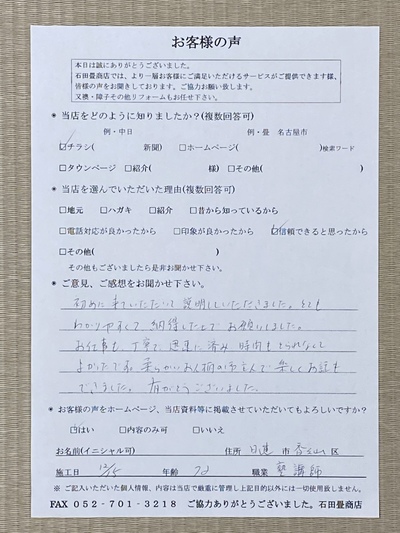 お客様の声
本日は誠にありがとうございました。
石田畳商店では、より一層お客様にご満足いただけるサービスがご提供できます様、
皆様の声をお聞きしております。ご協力お願い致します。
又襖・障子その他リフォームもお任せ下さい。
* 当店をどのように知りましたか?(複数回答可)
例・中日 例・畳 名古屋市
☑チラシ( 新聞) □ホームページ( )検索フード
□タウンページ □紹介( 様) □その他( )
* 当店を選んでいただいた理由(複数回答可)
□地元 □ハガキ □紹介 □昔から知っているから
□電話対応が良かったから □印象が良かったから ☑信頼できると思ったから
□その他( )
その他もございましたら是非お聞かせ下さい。
* ご意見、ご感想をお聞かせ下さい。
初めに来ていただいて説明していただきました。とても
わかりやすくて、納得した上でお願いしました。
お仕事も丁寧で迅速に済み 時間もとられなくて
よかったです。柔らかいお人柄の
で楽しくお話も
できました。有がとうございました。
* お客様の声をホームページ、当店資料等に掲載させていただいてもよろしいですか?
☑はい □内容のみ可 □いいえ
お名前(イニシャル可) 住所 日進 市 香久山 区
施工日 12/5 年齢 72 職業 塾講師
※ ご記入いただいた個人情報、内容は当店で厳重に管理し上記目的以外には一切使用致しません。
FAX 052-701-3218 ご協力ありがとうございました。石田畳商店